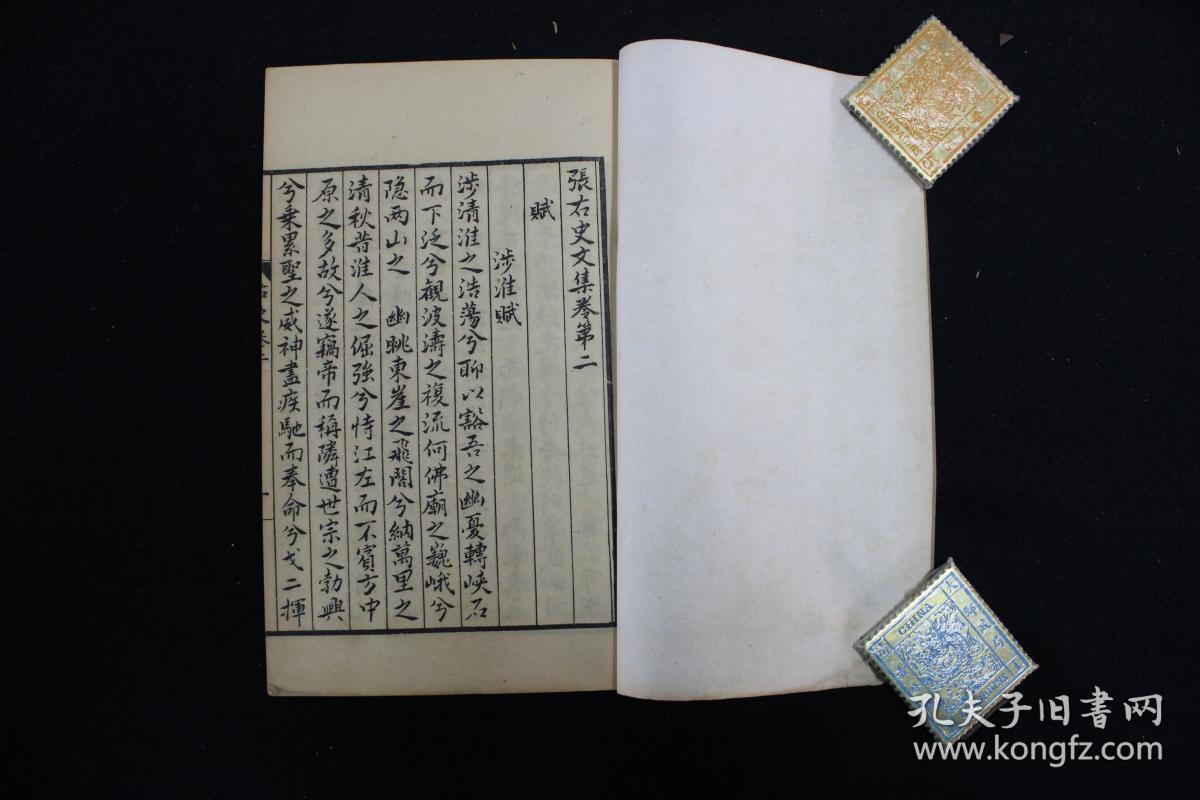 張右史文集卷第二
賦
涉淮賦
涉清淮之浩蕩兮聊以豁吾之幽憂轉峽石
而下泛兮觀波濤之複流何佛廟之巍峨兮
隐两山之 幽眺東崖之飛閣兮納萬里之
清秋昔淮人之倔強兮恃江左而不賓方中
原之多故兮遂竊帝而稱隣遭世宗之勃興
兮乗累聖之威神盡疾馳而奉命兮戈二揮
CHINA
孔夫子旧書网
www.kongfz.com